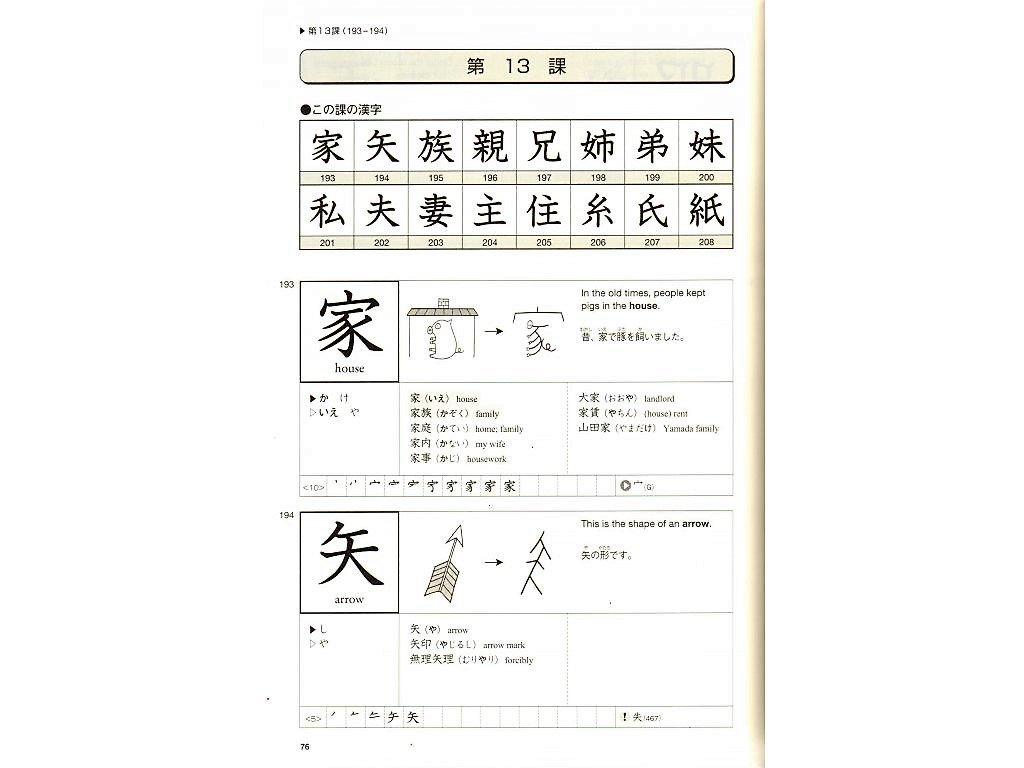 ▶第13課(193−194)
第 13 課
●この課の漢字
家 矢 族 親 兄 姉 弟 妹
193 194 195 196 197 198 199 200
私 夫 妻 主 住 糸 氏 紙
201 202 203 204 205 206 207 208
193
家
house
In the old times, people kept
pigs in the house.
昔、家で豚を飼いました。
▶か け
▷いえ や
家(いえ) house
家族(かぞく) family
家庭(かてい) home; family
家内(かない) my wife
家事(かじ) housework
大家(おおや) landlord
家賃(やちん) (house) rent
山田家(やまだけ) Yamada family
<10>
家
宀(6)
194
矢
arrow
This is the shape of an arrow.
矢の形です。
▶し
▷や
矢(や) arrow
矢印(やじるし) arrow mark
無理矢理(むりやり) forcibly
<5>
矢
! 失(467)
76